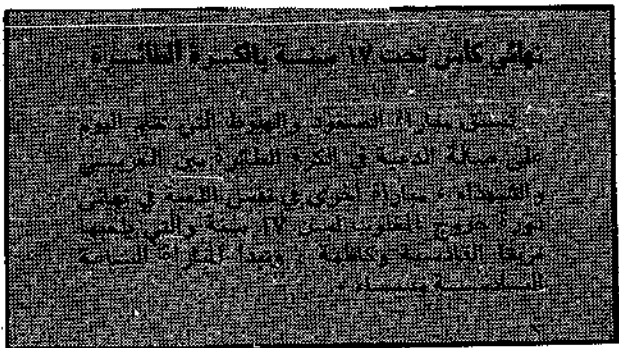 نهائي كأس تحت ١٧ سنة بالكرة الطائرة
تسبق مباراة الصعود والهبوط التي تقام اليوم
على صالة الدعية في الكرة الطائرة بين العربي
والشهداء ، مباراة أخرى في نفس اللعبة في نهائي
دورة خروج المغلوب لسن ١٧ سنة والتي يلعبها
فريقا القادسية وكاظمة ، وتبدأ المباراة الساعة
السادسة مساء .